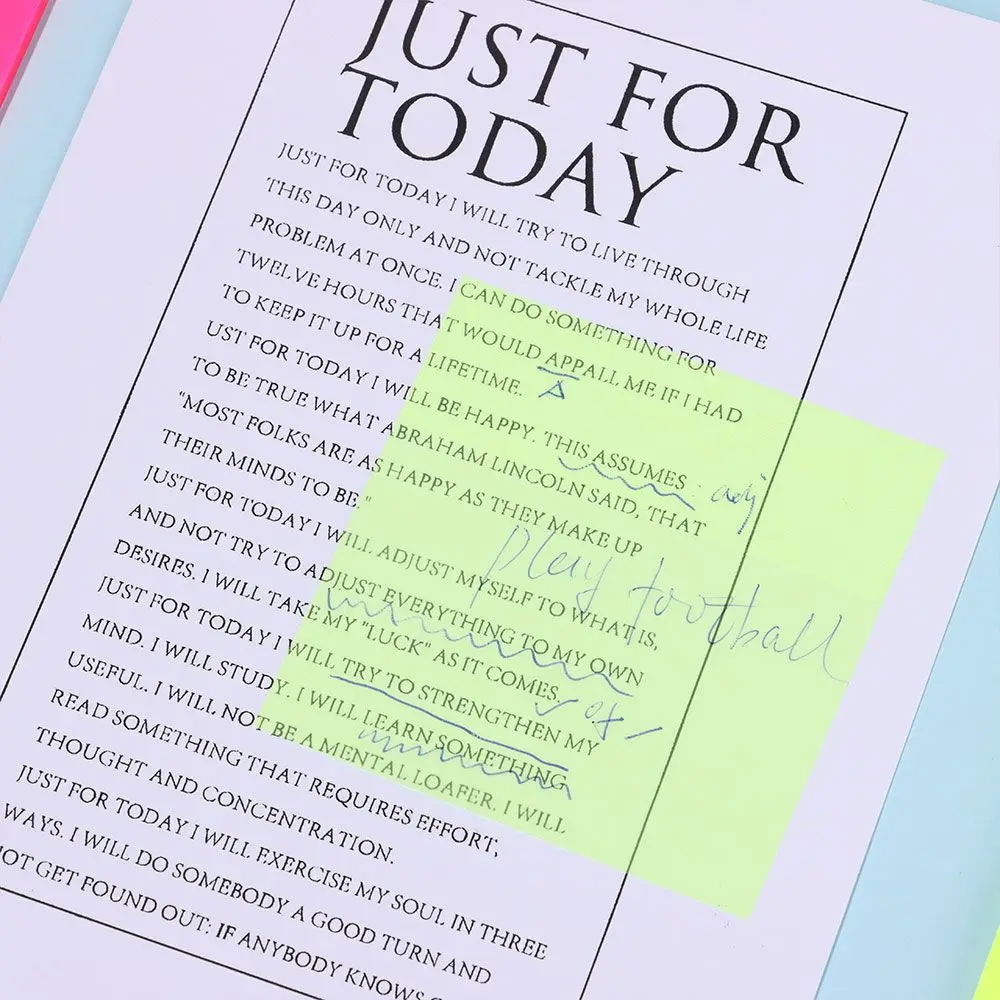 JUST FOR
TODAY
JUST FOR TODAY I WILL TRY TO LIVE THROUGH
THIS DAY ONLY AND NOT TACKLE MY WHOLE LIFE
PROBLEM AT ONCE. I CAN DO SOMETHING FOR
TWELVE HOURS THAT WOULD APPALL ME IF I HAD
TO KEEP IT UP FOR A LIFETIME.
UST FOR TODAY I WILL BE HAPPY. THIS ASSUMES
adj
TO BE TRUE WHAT ABRAHAM LINCOLN SAID, THAT
"MOST FOLKS ARE AS HAPPY AS THEY MAKE UP
THEIR MINDS TO BE."
play football
JUST FOR TODAY I WILL ADJUST MYSELF TO WHAT IS,
AND NOT TRY TO ADJUST EVERYTHING TO MY OWN
DESIRES. I WILL TAKE MY "LUCK" AS IT COMES.
JUST FOR TODAY I WILL TRY TO STRENGTHEN MY
MIND. I WILL STUDY. I WILL LEARN SOMETHING
USEFUL. I WILL NOT BE A MENTAL LOAFER. I WILL
READ SOMETHING THAT REQUIRES EFFORT,
THOUGHT AND CONCENTRATION.
JUST FOR TODAY I WILL EXERCISE MY SOUL IN THREE
WAYS. I WILL DO SOMEBODY A GOOD TURN AND
NOT GET FOUND OUT: IF ANYBODY KNOWS